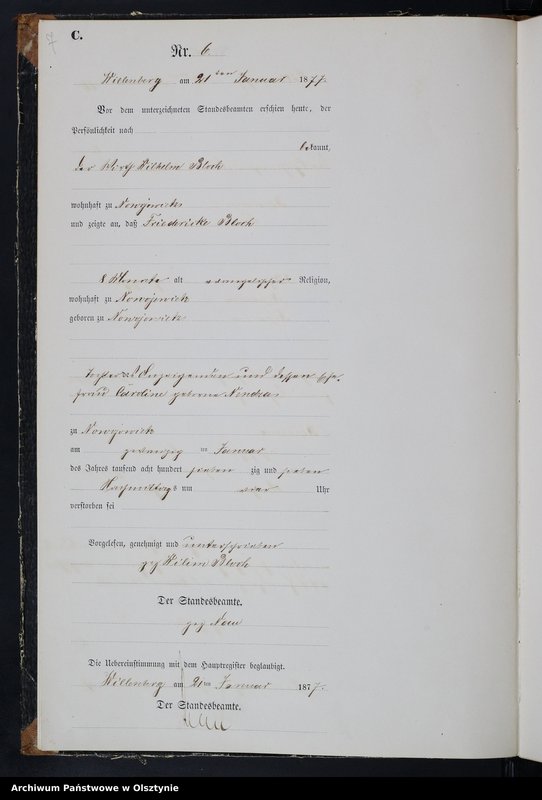 C.
Nr. 6
Willenberg am 21ten Januar 1877.
Vor dem unterzeichneten Standesbeamten erschien heute, der
Persönlichkeit nach
bekannt,
der Wirth Wilhelm Bloch
wohnhaft zu Nowojowitz
und zeigte an, daß Friedericke Bloch
8 Monate alt evangelischer Religion,
wohnhaft zu Nowojowitz
geboren zu Nowojowitz
Tochter des Anzeigenden und dessen Ehe-
frau Caroline geborne
zu Nowojowitz
am zwanzig ten Januar
des Jahres tausend acht hundert sieben zig und sieben
Nachmittags um vier Uhr
verstorben sei
Vorgelesen, genehmigt und unterschrieben
gez. Bloch
Der Standesbeamte.
gez.
Die Uebereinstimmung mit dem Hauptregister beglaubigt.
Willenberg am 21ten Januar 1877.
Der Standesbeamte.
Archiwum Państwowe w Olsztynie